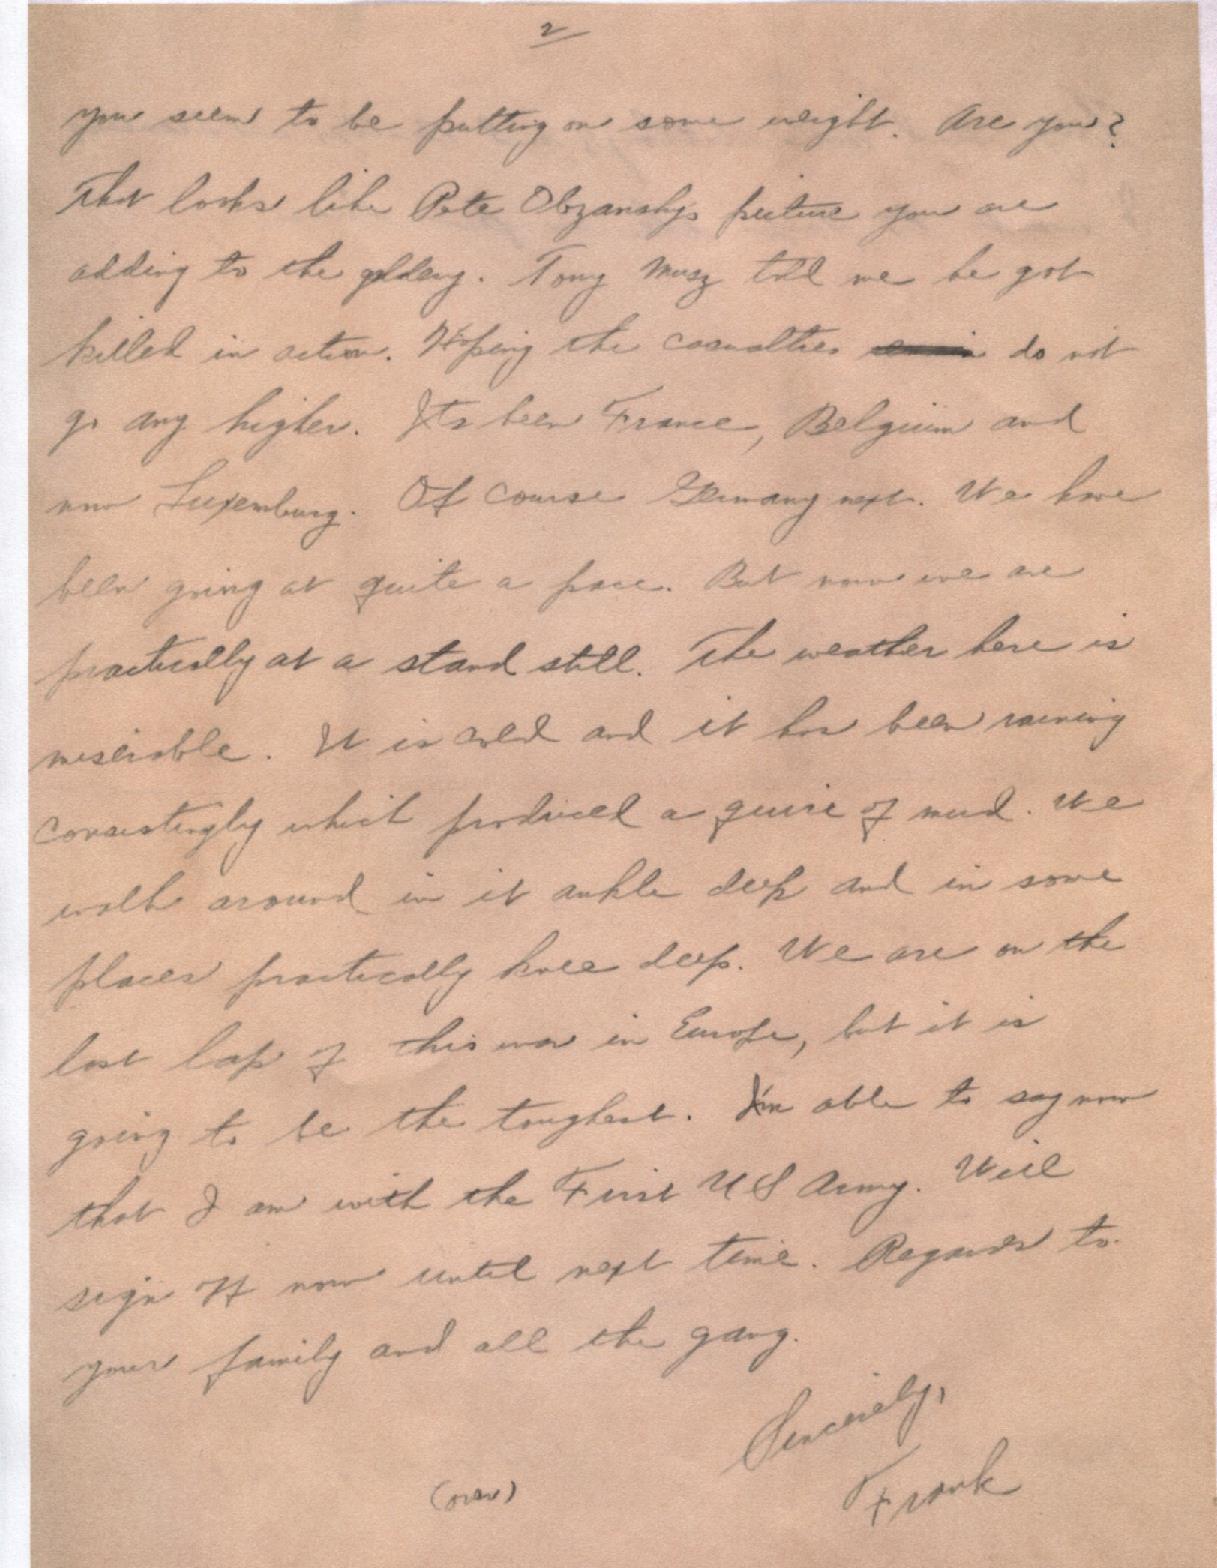 2
you seem to be putting on some weight. Are you?
That looks like Pete Obzansky's picture you are
adding to the gallery. Tony Musz told me he got
killed in action. Hoping the casualties do not
go any higher. Its been France, Belgium and
now Luxemburg. Of course Germany next. We have
been going at quite a pace. But now we are
practically at a stand still. The weather here is
miserable. It is cold and it has been raining
consistingly which produced a of mud. We
walk around in it ankle deep and in some
places practically knee deep. We are on the
last lap of this war in Europe, but it is
going to be the toughest. I'm able to say now
that I am with the First US Army. Will
sign off now until next time. Regards to
your family and all the gang.
Sincerely,
Frank
(over)